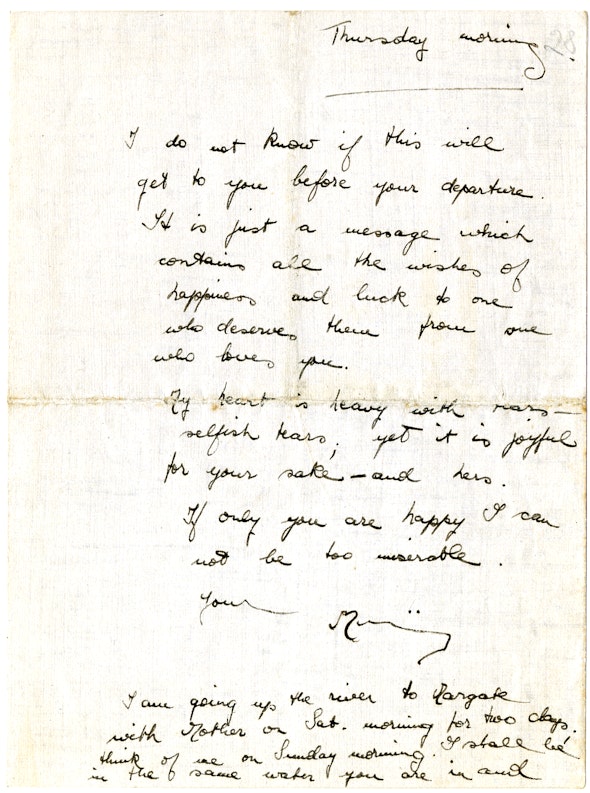 Thursday morning.
28
I do not know if this will
get to you before your departure.
It is just a message which
contains all the wishes of
happiness and luck to one
who deserves them from one
who loves you.
My heart is heavy with tears —
selfish tears; yet it is joyful
for your sake — and hers.
If only you are happy I can
not be too miserable.
Your
I am going up the river to Margate
with Mother on Sat. morning for two days.
think of me on Sunday morning. I shall be
in the same water you are in and